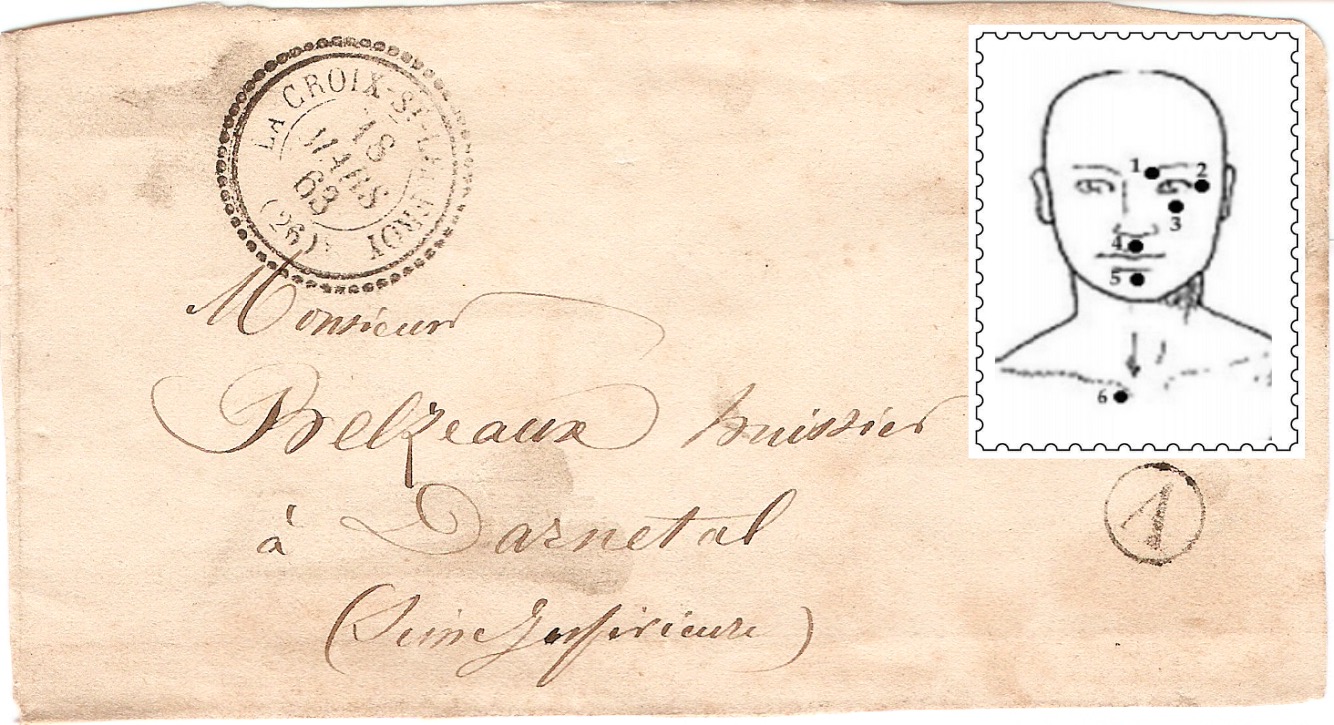 LA CROIX-ST-LEUFROY
18
MARS
63
(26)
Monsieur
Belzeaux huissier
à Darnetal
(Seine Inférieure)
1
2
3
4
5
6
1